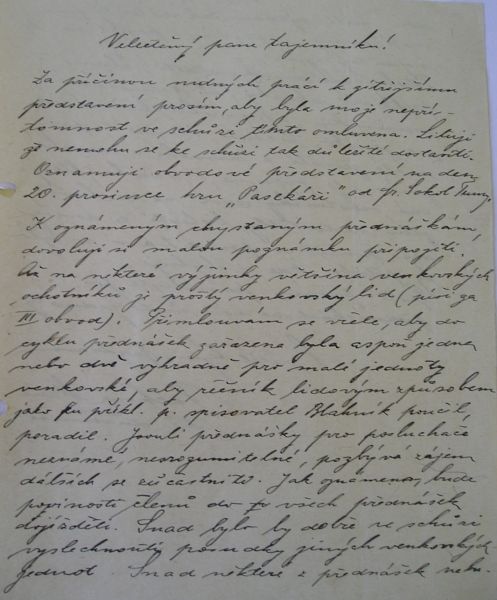 Velectěný pane tajemníku!
Za příčinou nutných prácí k zítřejšímu
představení prosím, aby byla moje nepří-
tomnost ve schůzi tímto omluvena. Lituji
že nemohu se ke schůzi tak důležité dostaviti.
Oznamuji obvodové představení na den
20. prosince hru „Pasekáři" od Fr. Sokol Tůmy.
K oznámeným chystaným přednáškám,
dovoluji si malou poznámku připojiti.
Až na některé výjimky většina venkovských
ochotníků je prostý venkovský lid (píši za
III obvod). Přimlouvám se vřele, aby do
cyklu přednášek zařazena byla aspoň jedna
nebo dvě výhradně pro malé jednoty
venkovské, aby řečník lidovým způsobem
jako ku příkl. p. spisovatel Blahník poučil,
poradil. Jsouli přednášky pro posluchače
neznámé, nesrozumitelné, pozbývá zájem
dalších se zúčastniti. Jak oznámeno, bude
povinností členů do všech přednášek
dojížděti. Snad bylo by dobře ve schůzi
vyslechnouti posudky jiných venkovských
jednot. Snad některé z přednášek